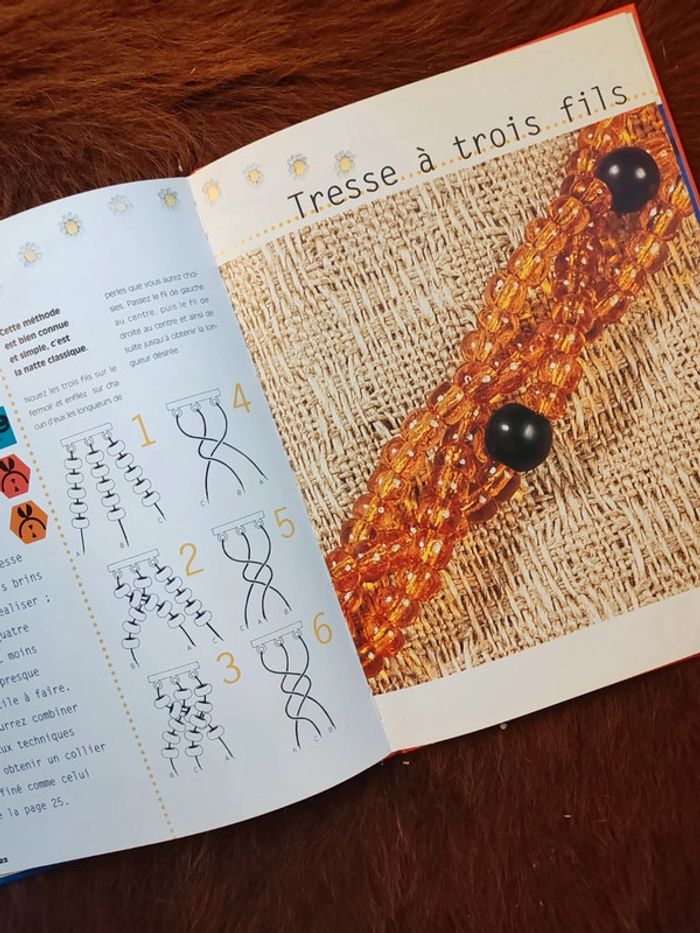 Tresse à trois fils
Cette méthode
est bien connue
et simple, c'est
la natte classique.
Nouez les trois fils sur le
fermoir et enfilez sur cha-
cun d'eux les longueurs de
perles que vous aurez choi-
sies. Passez le fil de gauche
au centre, puis le fil de
droite au centre et ainsi de
suite jusqu'à obtenir la lon-
gueur désirée.
1
A
B
C
2
A
3
B
C
A
4
C
B
A
5
C
A
B
6
A
C
B
esse
s brins
éaliser :
uatre
moins
presque
cile à faire.
urrez combiner
ux techniques
obtenir un collier
ffiné comme celui
la page 25.
22